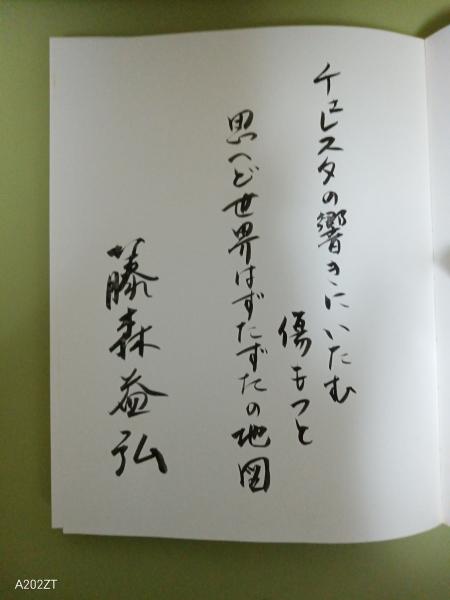 チェレスタの響きにいたむ
傷もつと
思へど世界はずたずたの地図
藤森益弘
A202ZT